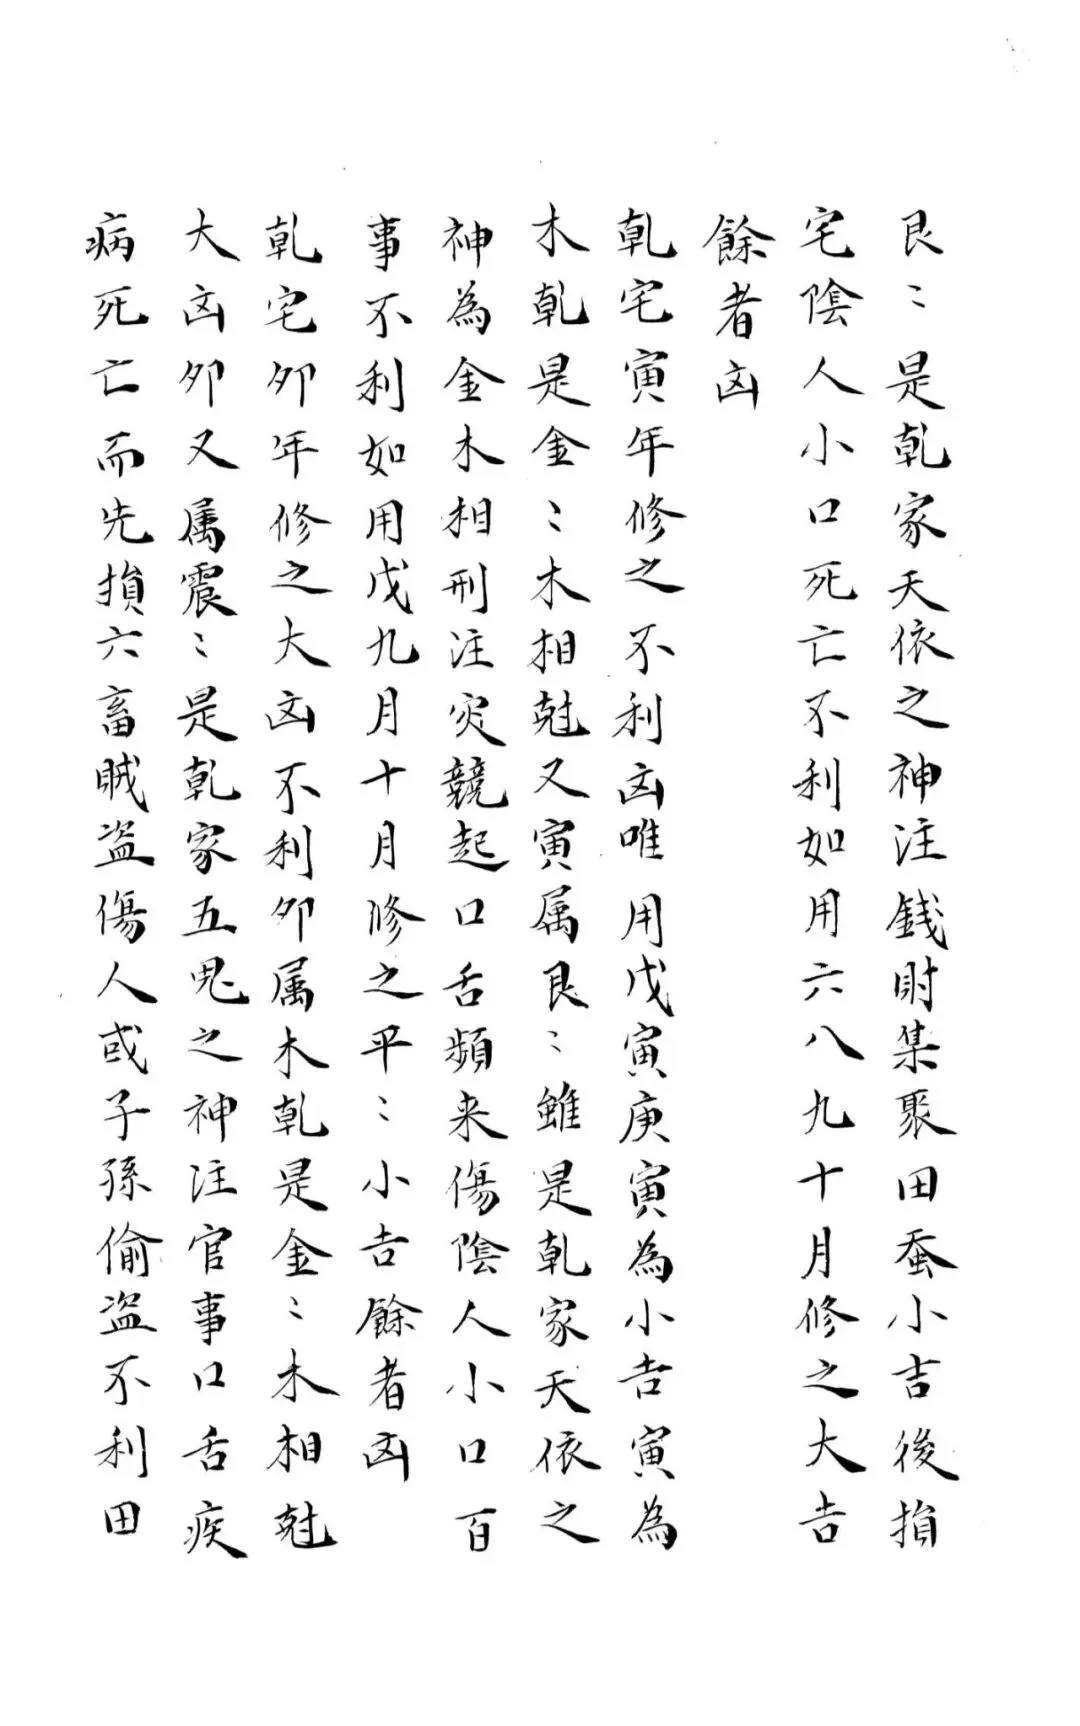 艮〻是乹家天依之神注錢財集聚田蚕小吉後損
宅陰人小口死亡不利如用六八九十月修之大吉
餘者凶
乹宅寅年修之不利凶唯用戊寅庚寅為小吉寅為
木乹是金〻木相尅又寅属艮〻雖是乹家天依之
神為金木相刑注灾競起口舌頻来傷陰人小口百
事不利如用戊九月十月修之平〻小吉餘者凶
乹宅夘年修之大凶不利夘属木乹是金〻木相尅
大凶夘又属震〻是乹家五鬼之神注官事口舌疾
病死亡而先損六畜賊盗傷人或子孫偷盗不利田